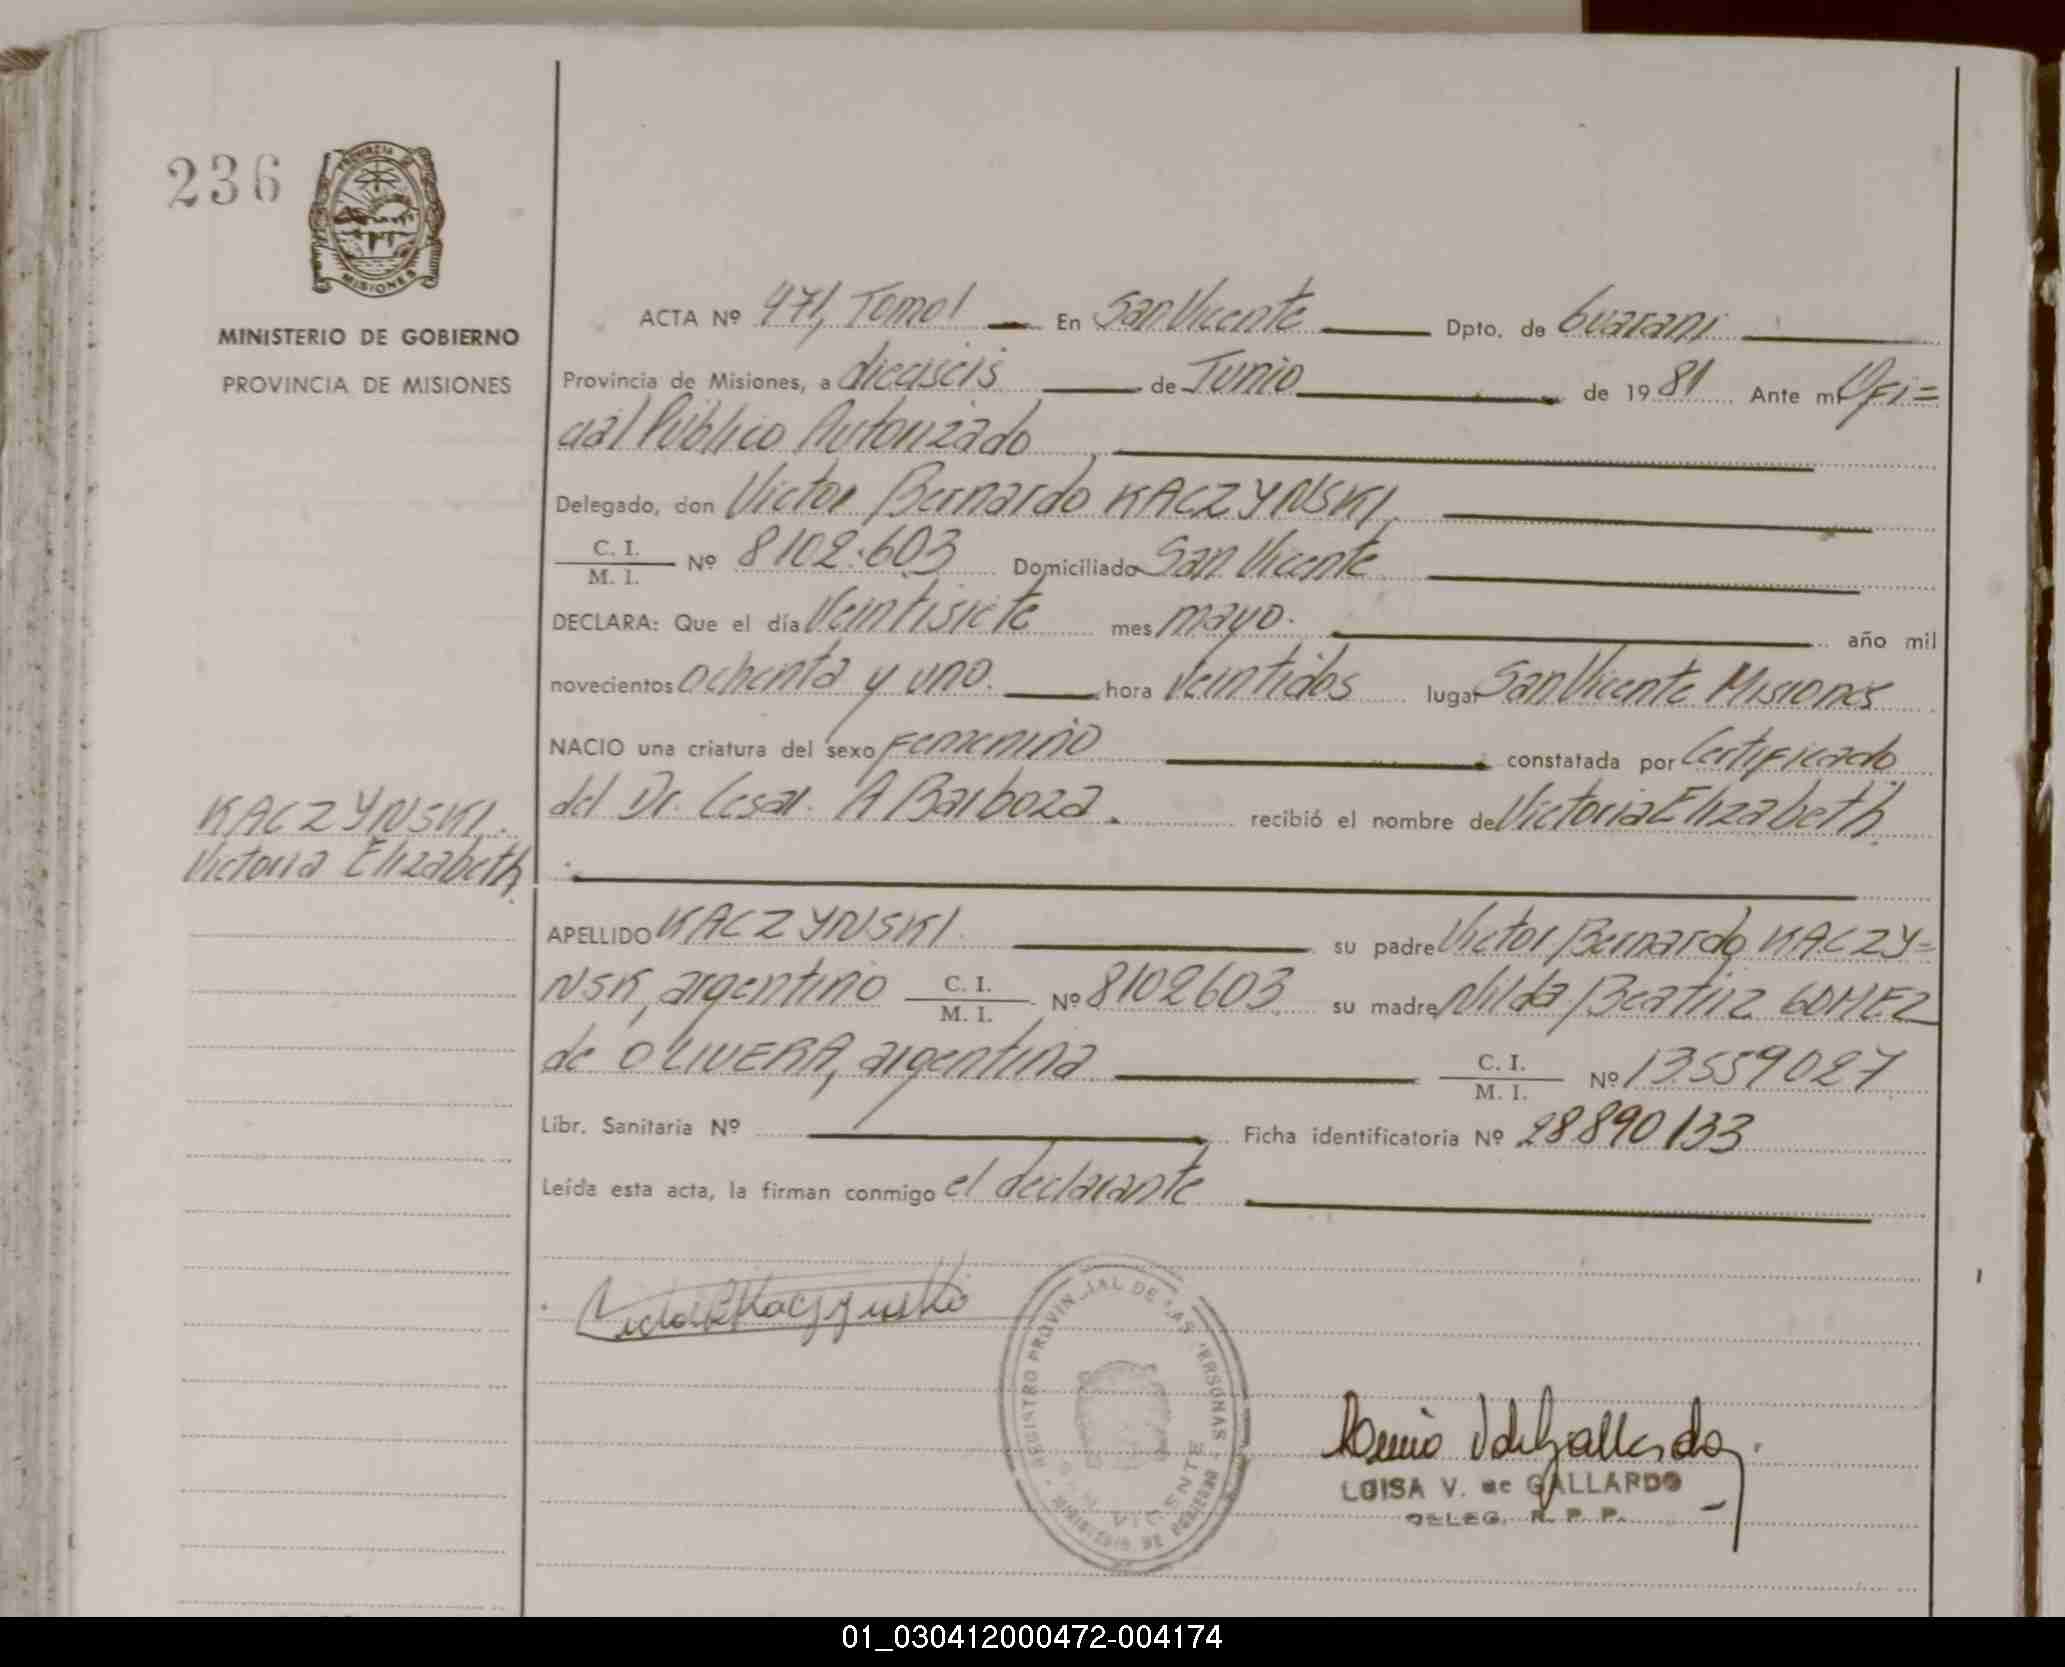 236
PROVINCIA DE
MISIONES
MINISTERIO DE GOBIERNO
PROVINCIA DE MISIONES
ACTA Nº 471, Tomo I En San Vicente Dpto. de Guarani
Provincia de Misiones, a dieciseis de Junio de 1981 Ante mi Ofi=
cial Público Autorizado
Delegado, don Victor Bernardo KACZYNSKI,
C. I.
M. I. Nº 8102.603 Domiciliado San Vicente
DECLARA: Que el día Veintisiete mes mayo. año mil
novecientos ochenta y uno. hora Veintidos lugar San Vicente Misiones
NACIO una criatura del sexo Femenino constatada por Certificado
del Dr. Cesar. A Barboza. recibió el nombre de Victoria Elizabeth.
KACZYNSKI.
Victoria Elizabeth.
APELLIDO KACZYNSKI. su padre Victor Bernardo KACZY=
NSKI, argentino C. I.
M. I. Nº 8102603. su madre Nilda Beatriz GOMEZ
de OLIVERA, argentina C. I.
M. I. Nº 13559027
Libr. Sanitaria Nº Ficha identificatoria Nº 28890133
Leída esta acta, la firman conmigo el declarante
REGISTRO PROVINCIAL DE LAS PERSONAS
SAN VICENTE
MINISTERIO DE GOBIERNO
LUISA V. de GALLARDO
DELEG. R. P. P.
01_030412000472-004174